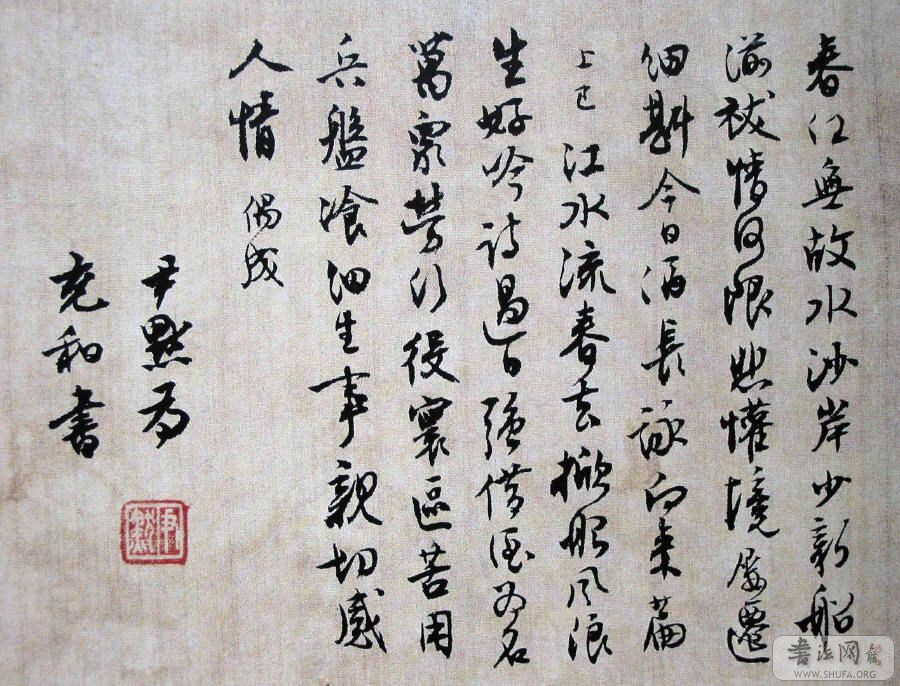 春江無故水沙岸少新船
湔祓情何限悲懽境屢遷
細斟今日酒長詠向來篇
上巳 江水流春去掀船風浪
生好吟詩過日強借酒為名
萬眾勞行役寰區苦用
兵盤飡細生事親切感
人情 偶成
尹默為
充和書
尹默
書法网
WWW.SHUFA.ORG